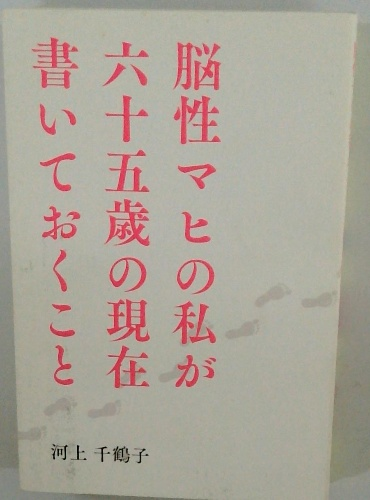 脳性マヒの私が
六十五歳の現在
書いておくこと
河上 千鶴子